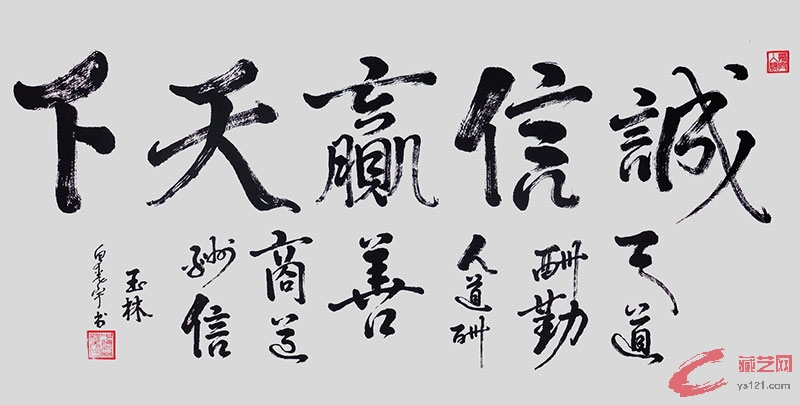 誠信贏天下
天道
酬勤
人道酬
善
商道
酬信
玉林
藏艺网
ys121.com